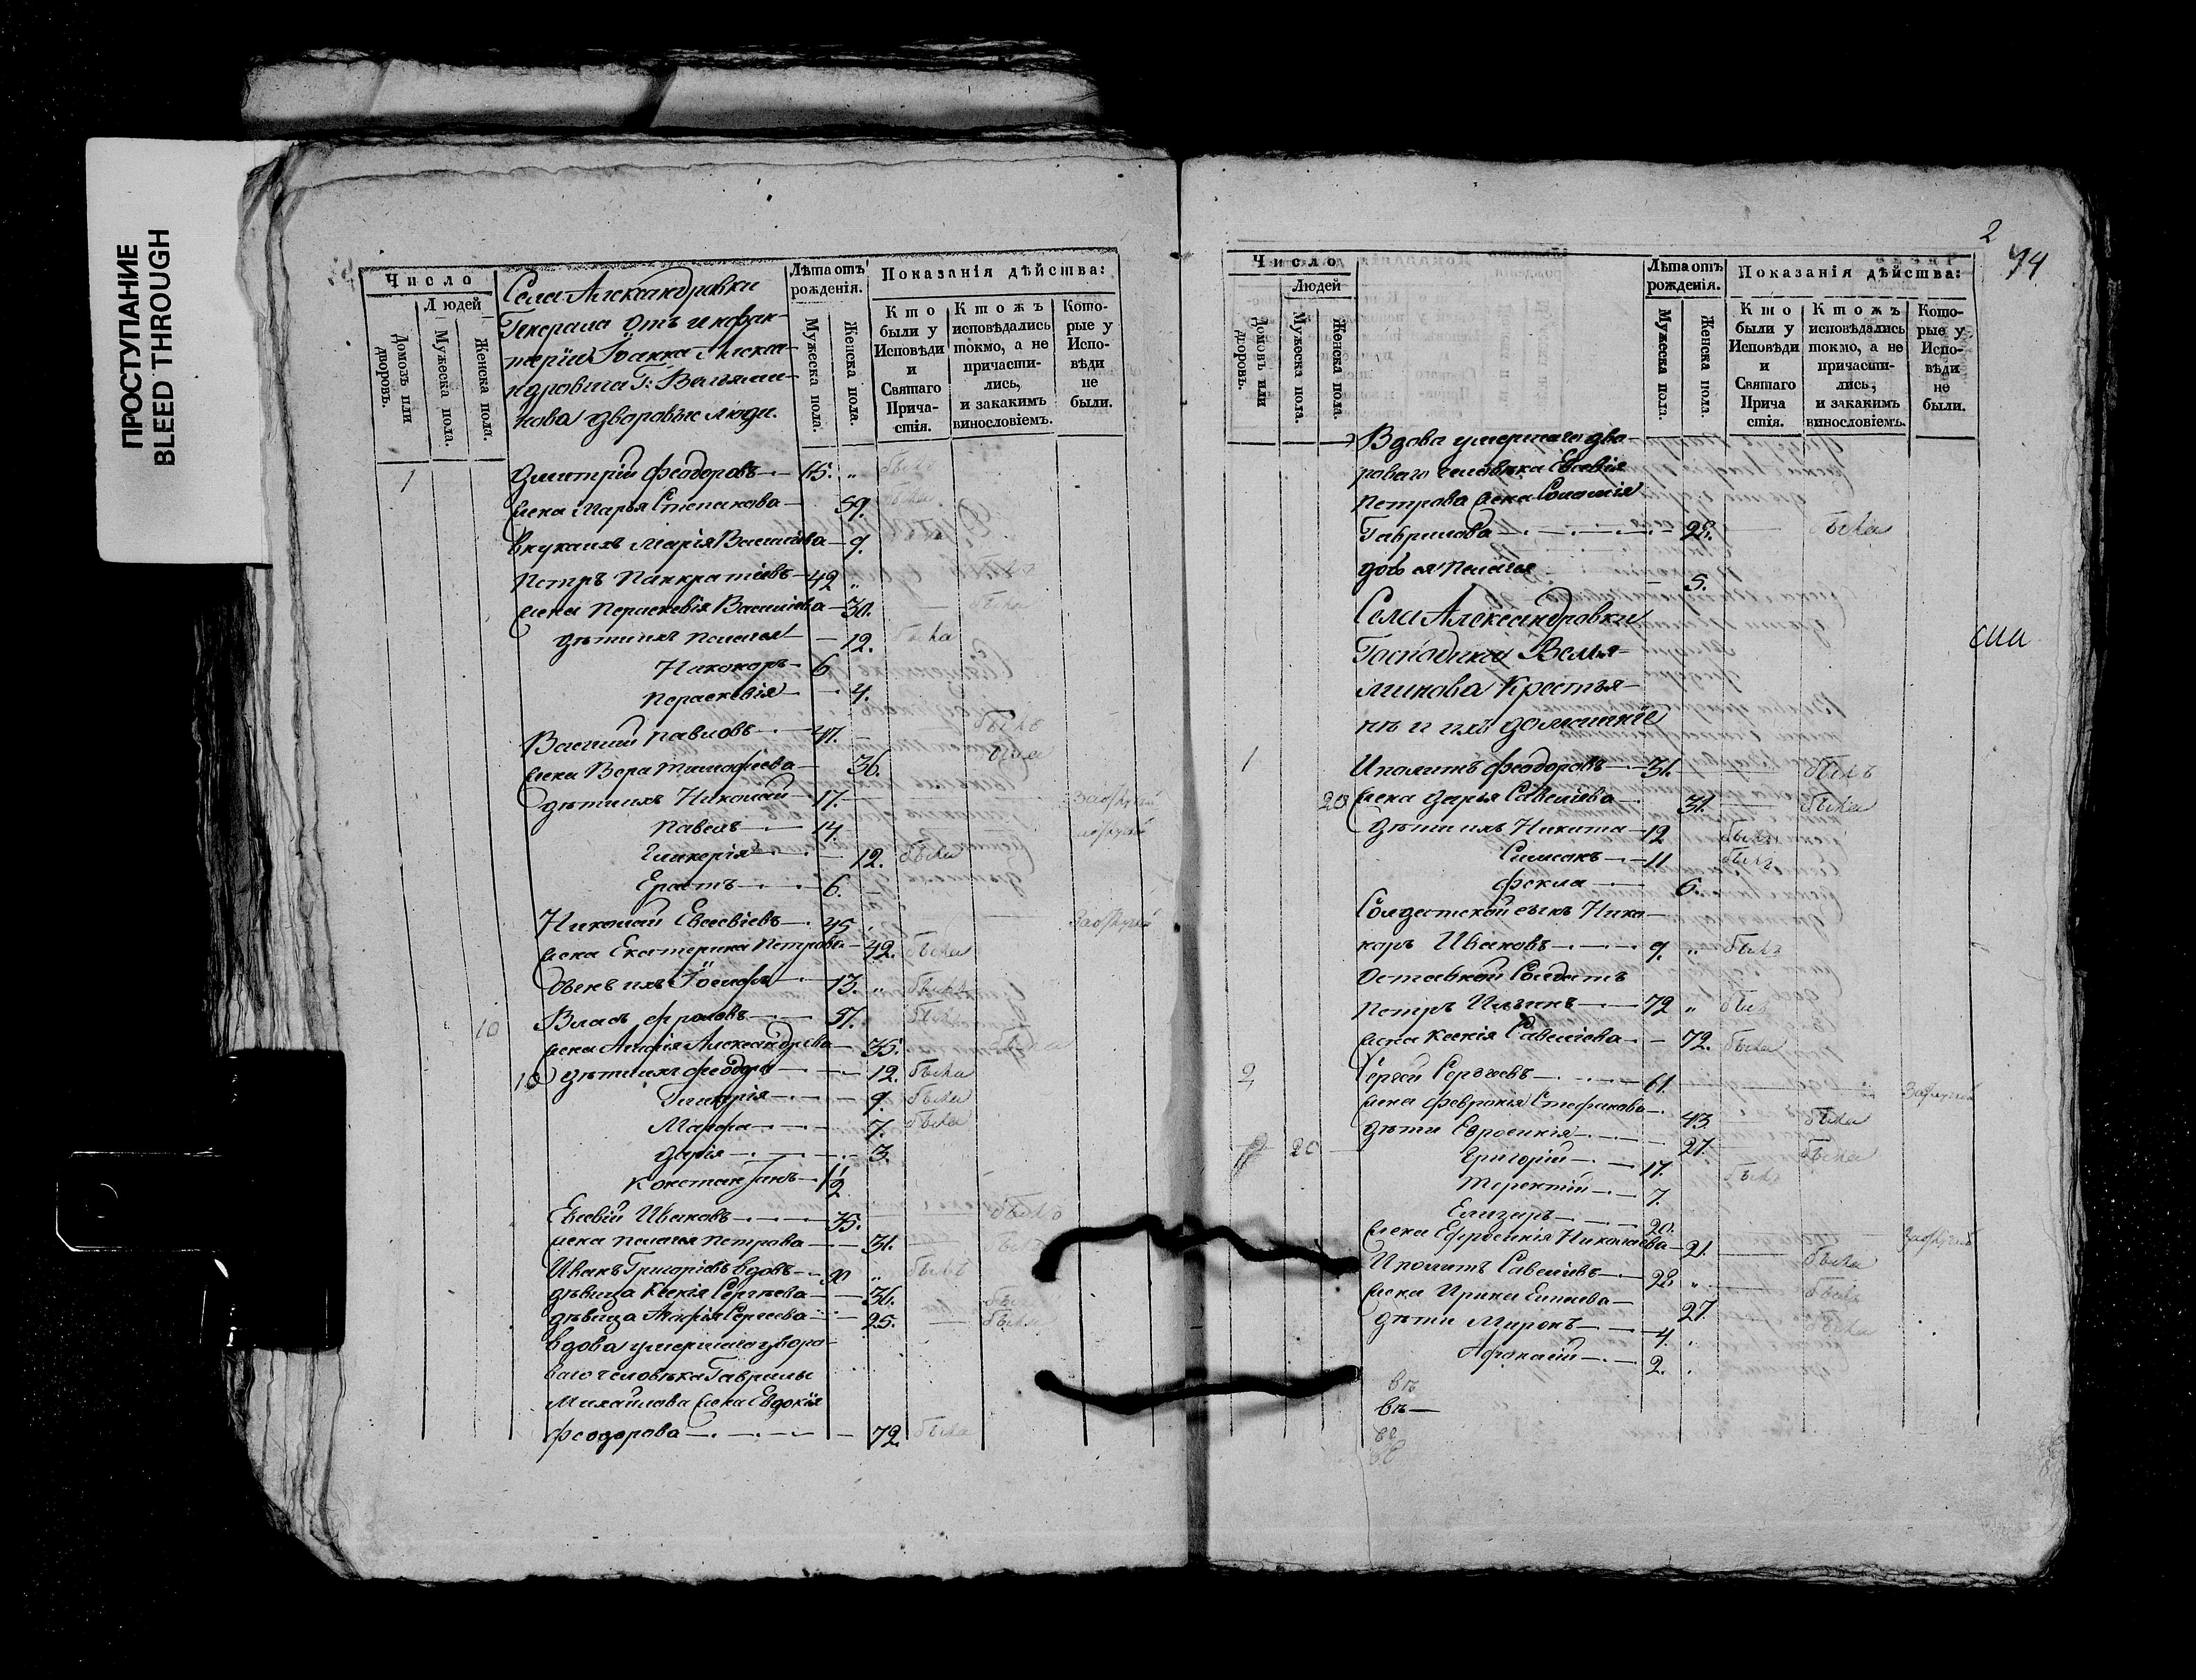 ПРОСТУПАНИЕ
BLEED THROUGH
Число
Людей
Домовъ или дворовъ.
Мужеска пола.
Женска пола.
Села Александровки
Генерала отъ инфан-
теріи Іоанна Алекса-
ндровича Г: Вельями-
нова дворовые люди.
Лѣта отъ рожденія.
Мужеска пола.
Женска пола.
Показанія дѣйства:
Кто были у Исповѣди и Святаго Прича-стія.
Ктожъ исповѣдались токмо, а не причасти-лись, и закакимъ винословіемъ.
Кото-рые у Испо-вѣди не были.
1 Дмитрій Феодоровъ 65. „ былъ
жена Марья Степанова 59. была
внука ихъ Марія Василіева 9.
Петръ Панкратіевъ 42 „
жена Перасковія Василіева 30. была
дѣти ихъ Пелагея 12. была
Никаноръ 6
Перасковія 4.
Василій Павловъ 47. былъ
жена Вера Тимофіева 36. была
дѣти ихъ Николай 17.
Павелъ 14.
Гликерія 12. была
Ерастъ 6.
Николай Евсевіевъ 45.
жена Екатерина Петрова 42. была
сынъ ихъ Іосифъ 13. „ былъ
10 Власъ Фроловъ 57. былъ
жена Агафія Александрова 35. была
10 дѣти ихъ Феодора 12. была
Гликерія 9. была
Марфа 7. была
Дарія 3.
Константинъ 2
Евсевій Ивановъ 35. былъ
жена Пелагея Петрова 31.
Иванъ Григоріевъ вдовъ „ былъ
дѣвица Ксенія Сергѣева 36.
дѣвица Агафія Сергеева 25. была
Вдова умершаго дворо-
ваго человѣка Гаврилы
Михайлова жена Евдокія
Феодорова 72. была
2
74
Число
Людей
Домовъ или дворовъ.
Мужеска пола.
Женска пола.
Лѣта отъ рожденія.
Мужеска пола.
Женска пола.
Показанія дѣйства:
Кто были у Исповѣди и Святаго Прича стія.
Ктожъ исповѣдались токмо, а не причасти-лись, и закакимъ винословіемъ.
Кото-рые у Испо-вѣди не были.
Вдова умершаго дво-
роваго человѣка Евсевія
Петрова жена Соломія
Гаврилова 28. была
дочь ея Пелагея 5.
Села Александровки
Господина Велья-
минова Крестья-
нѣ и ихъ домашніе
1 Иполитъ Феодоровъ 31. былъ
20 жена Дарья Савеліева 31. была
дѣти ихъ Никита 12 былъ
Симеонъ 11 былъ
Фекла 6.
Солдатской сынъ Ника-
норъ Ивановъ 9. „ былъ
Оставной Солдатъ
Петръ Ильинъ 72 „ былъ
жена Ксенія Савеліева 72. была
2 Сергѣй Сергѣевъ 61.
жена Февронія Стефанова 43 была
дѣти Евросинія 27. была
20 Григорій 17. былъ
Терентій 7.
Елизаръ 20.
жена Ефросинія Николаева 21. была
Иполитъ Савеліевъ 28. „ былъ
жена Ирина 27. была
дѣти Миронъ 4.
Афонасій 2.